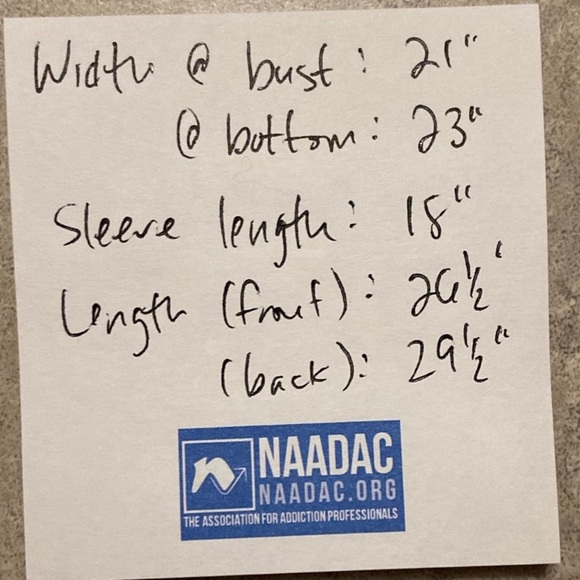 Width @ bust: 21"
@ bottom: 23"
Sleeve length: 18"
Length (front): 26½"
(back): 29½"
NAADAC
NAADAC.ORG
THE ASSOCIATION FOR ADDICTION PROFESSIONALS